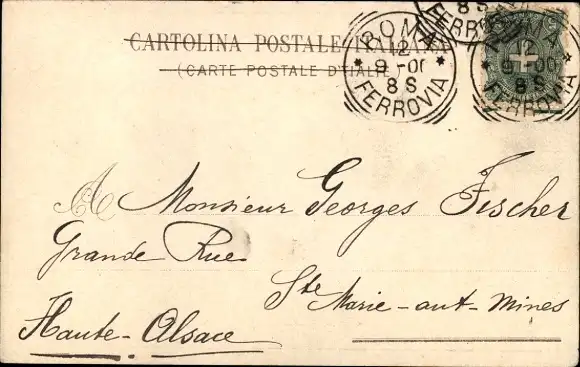 CARTOLINA POSTALE ITALIANA
(CARTE POSTALE D'ITALIE)
ROMA
12
9-00
8 S
FERROVIA
8 S
FERROVIA
ROMA
12
9-00
8 S
FERROVIA
A Monsieur Georges Fischer
Grande Rue
Ste Marie-aut-Mines
Haute-Alsace